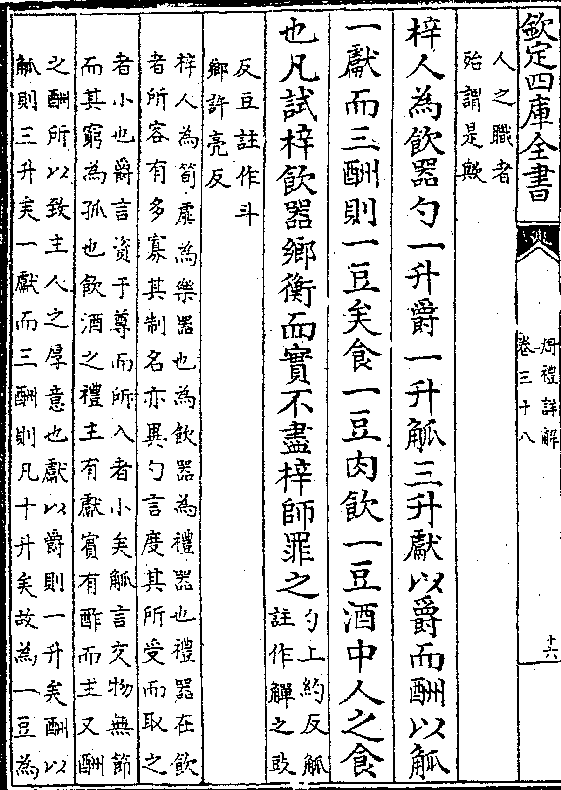 欽定四庫全書
周禮詳解
卷三十八
十六
人之職者
殆謂是歟
梓人為飲器勺一升爵一升觚三升獻以爵而酬以觚
一獻而三酬則一豆矣食一豆肉飲一豆酒中人之食
也凡試梓飲器鄉衡而實不盡梓師罪之
勺上約反觚
註作觶之豉
反豆註作斗
鄉許亮反
梓人為筍虡為樂器也為飲器為禮器也禮器在飲
者所容有多寡其制名亦異勺言度其所受而取之
者小也爵言资于尊而所入者小矣觚言交物無節
而其窮為孤也飲酒之禮主有獻賓有酢而主又酬
之酬所以致主人之厚意也獻以爵則一升矣酬以
觚則三升矣一獻而三酬則凡十升矣故為一豆為